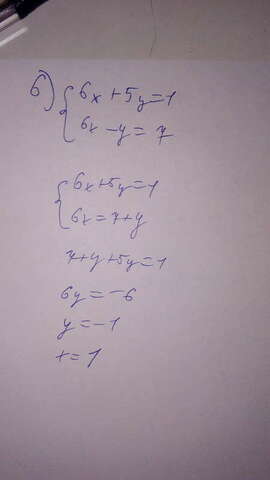 б) { 6x + 5y = 1
6x - y = 7
{ 6x + 5y = 1
6x = 7 + y
7 + y + 5y = 1
6y = -6
y = -1
x = 1